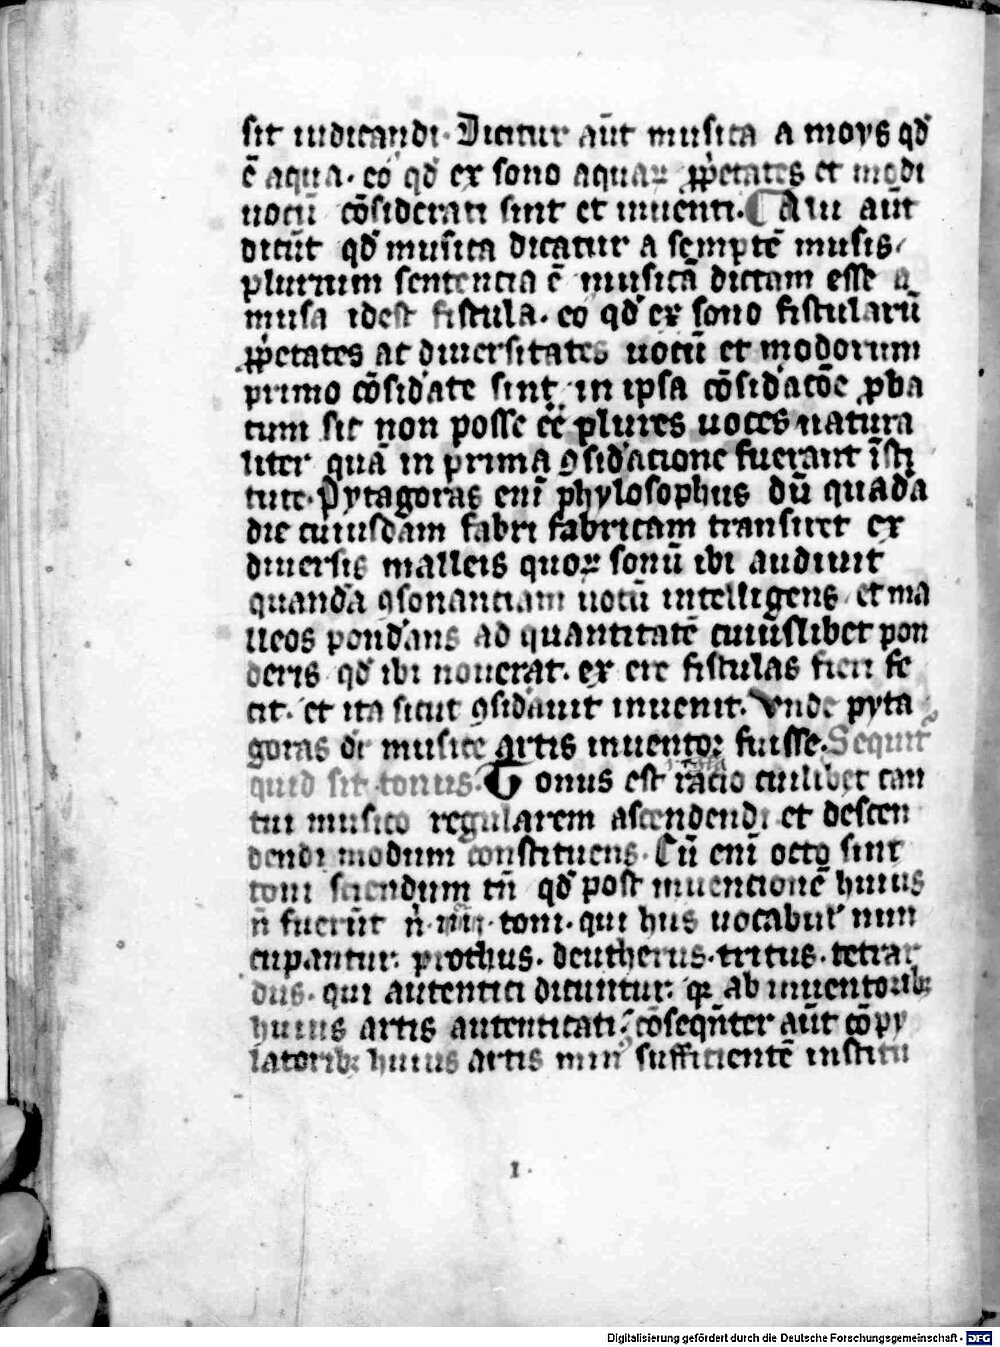 sit iudicandi. Dicitur aūt musica a moys qd̄
ē aqua. eo qd̄ ex sono aquaꝝ ꝓp̄etates et modi
uocū cōsiderati sint et inuenti. ¶ Alii aūt
dicūt qd̄ musica dicatur a semptē musis,
plurium sentencia ē musicā dictam esse a
musa idest fistula. eo qd̄ ex sono fistularū
ꝓp̄etates ac diuersitates uocū et modorum
primo cōsid'ate sint, in ipsa cōsid'atōe ꝓba
tum sit non posse eē plures uoces natura
liter quā in prima ꝯsid'acione fuerant īsti
tute. Pytagoras enī phylosophus dū quad'a
die cuiusdam fabri fabricam transiret ex
diuersis malleis quoꝝ sonū ibi audiuit
quand'a ꝯsonanciam uocū intelligens et ma
lleos pond'ans ad quantitatē cuiuslibet pon
deris qd̄ ibi nouerat. ex ere fistulas fieri fe
cit. et ita sicut ꝯsid'auit inuenit. Vnde pyta
goras dr̄ musice artis inuentoꝛ fuisse. Sequit᷑
quid sit tonus. Tonus est racio cuilibet can
tui musico regularem ascendendi et descen
dendi modum constituens. Cū enī octo sint
toni sciendum tn̄ qd̄ post inuencionē huius
n̄ fuerūt n̄ iiii. toni. qui hiis uocabul' nun
cupantur. prothus. deutherus. tritus. tetrar
dus. qui autentici dicuntur. qꝛ ab inuentoribꝫ
huius artis autenticati. cōseqn̄ter aūt cōpy
latoribꝫ huius artis minꝰ sufficientē institu
I.
Digitalisierung gefördert durch die Deutsche Forschungsgemeinschaft - DFG